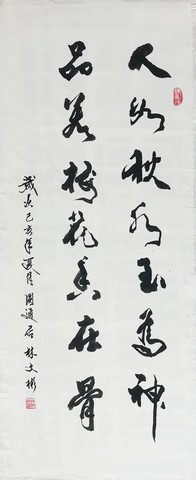 人如秋水玉為神
品若梅花香在骨
歲次己亥年夏月國通居林文彬